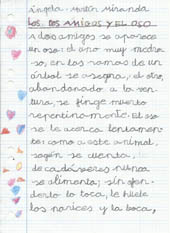 Ángela Martín Miranda
LOS DOS AMIGOS Y EL OSO
A dos amigos se aparece
un oso: el uno muy medro
so, en las ramas de un
árbol se asegura, el otro,
abandonado a la ven-
tura, se finge muerto
repentinamente. El oso
se le acerca lentamen-
te: como este animal,
según se cuenta,
de cadáveres nunca
se alimenta, sin ofen-
derlo lo toca, le huele
las narices y la boca,